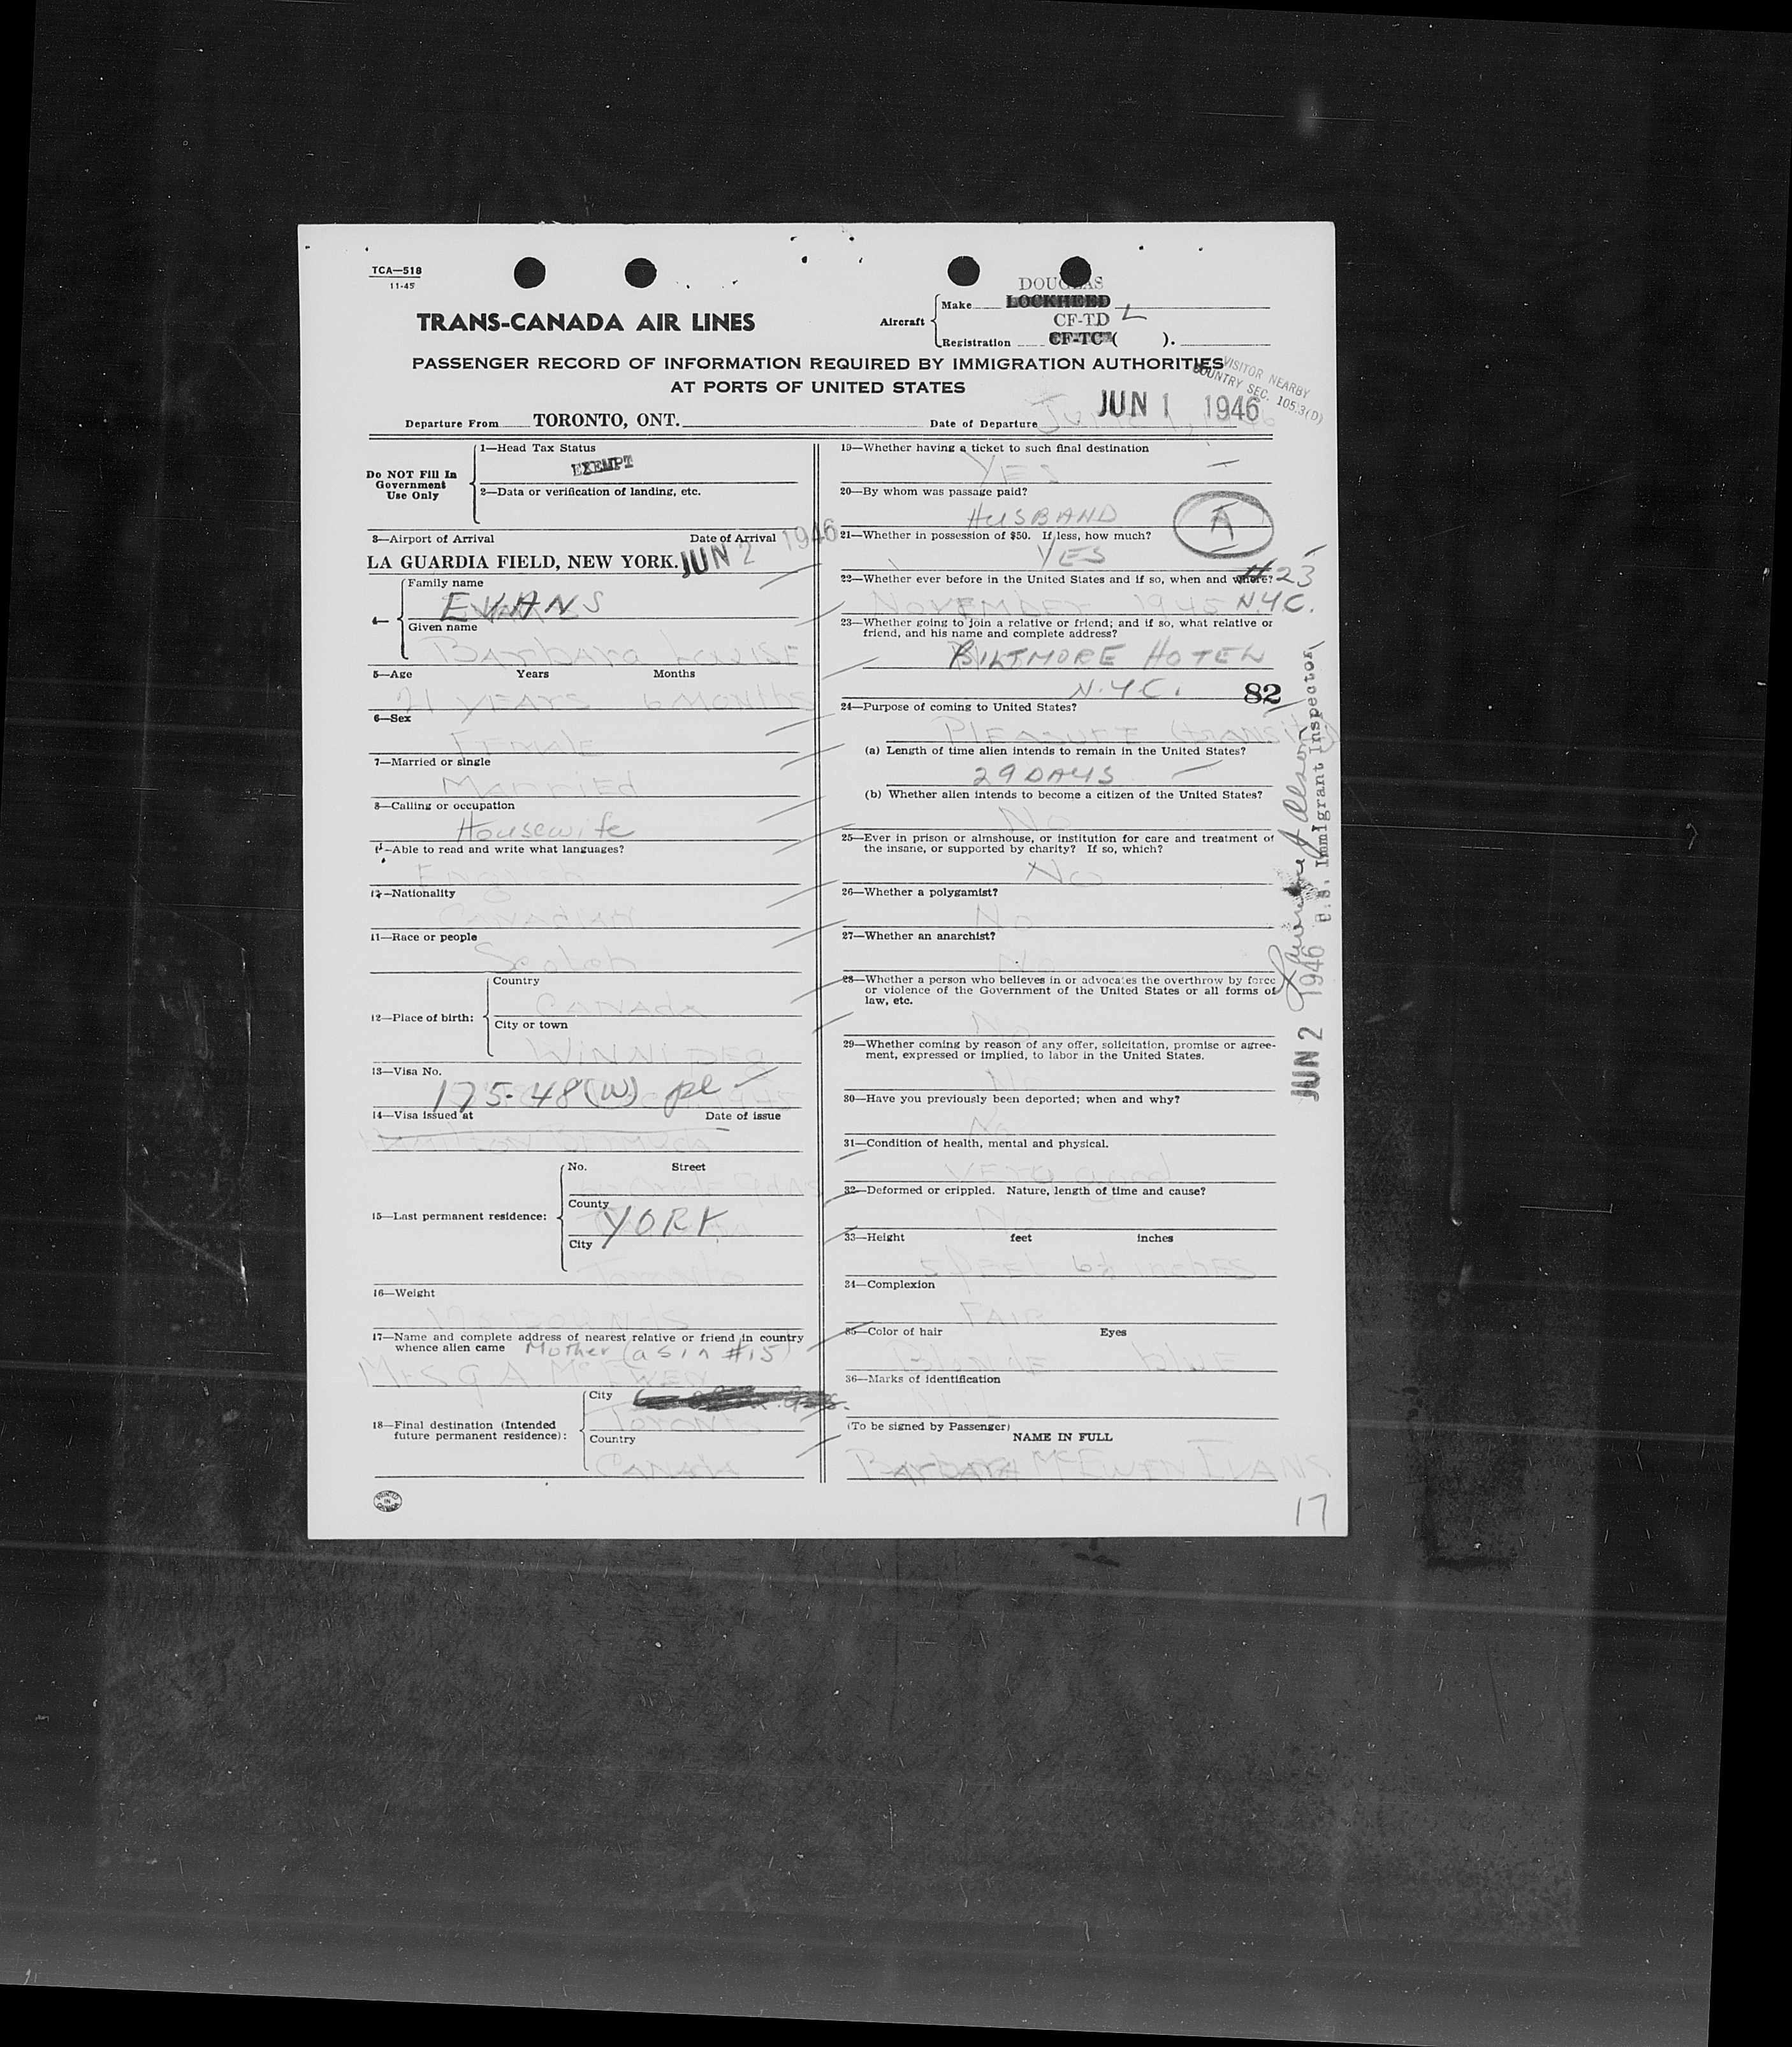 TCA—518
11-45
DOUGLAS
Make LOCKHEED
TRANS-CANADA AIR LINES
Aircraft
CF-TD L
Registration CF-TC ( ).
PASSENGER RECORD OF INFORMATION REQUIRED BY IMMIGRATION AUTHORITIES
AT PORTS OF UNITED STATES
VISITOR NEARBY
COUNTRY SEC. 105.3(D)
Departure From TORONTO, ONT.
Date of Departure JUN 1 1946
Do NOT Fill In
Government
Use Only
1—Head Tax Status
EXEMPT
2—Data or verification of landing, etc.
3—Airport of Arrival Date of Arrival
LA GUARDIA FIELD, NEW YORK. JUN 2 1946
4—
Family name
EVANS
Given name
Barbara Louise
5—Age Years Months
21 YEARS 6 MONTHS
6—Sex
Female
7—Married or single
Married
8—Calling or occupation
Housewife
—Able to read and write what languages?
English
—Nationality
Canadian
11—Race or people
Scotch
12—Place of birth:
Country
Canada
City or town
Winnipeg
13—Visa No.
175-48(W) pl
14—Visa issued at Date of issue
Hamilton Bermuda
15—Last permanent residence:
No. Street
County
YORK
City
Toronto
16—Weight
17—Name and complete address of nearest relative or friend in country
whence alien came Mother (as in #15)
Mrs G A McEwen
18—Final destination (Intended
future permanent residence):
City
Toronto
Country
Canada
PRINTED
IN
CANADA
19—Whether having a ticket to such final destination
YES
20—By whom was passage paid?
HUSBAND
A
21—Whether in possession of $50. If less, how much?
YES
22—Whether ever before in the United States and if so, when and where?
#23
November 1945 N.Y.C.
23—Whether going to join a relative or friend; and if so, what relative or
friend, and his name and complete address?
BILTMORE HOTEL
N.Y.C. 82
24—Purpose of coming to United States?
Pleasure (transit)
(a) Length of time alien intends to remain in the United States?
29 DAYS
(b) Whether alien intends to become a citizen of the United States?
No
25—Ever in prison or almshouse, or institution for care and treatment of
the insane, or supported by charity? If so, which?
No
26—Whether a polygamist?
No
27—Whether an anarchist?
No
28—Whether a person who believes in or advocates the overthrow by force
or violence of the Government of the United States or all forms of
law, etc.
No
29—Whether coming by reason of any offer, solicitation, promise or agree-
ment, expressed or implied, to labor in the United States.
No
30—Have you previously been deported; when and why?
No
31—Condition of health, mental and physical.
Very good
32—Deformed or crippled. Nature, length of time and cause?
No
33—Height feet inches
5 feet 6½ inches
34—Complexion
FAIR
35—Color of hair Eyes
Blonde blue
36—Marks of identification
Nil
(To be signed by Passenger)
NAME IN FULL
Barbara McEwen Evans
17
JUN 2 1946
U.S. Immigrant Inspector